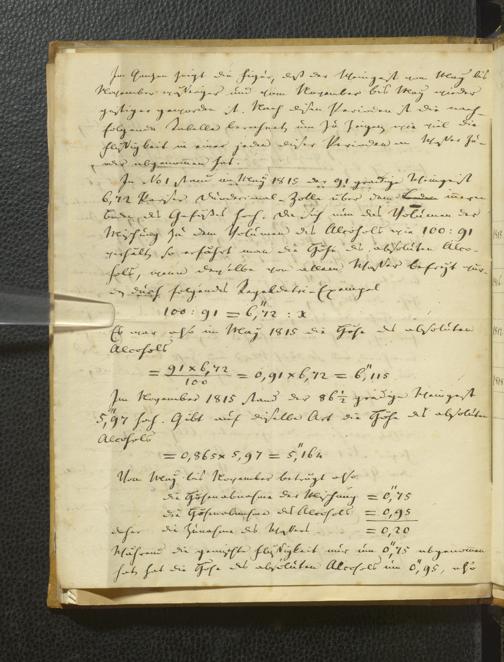 Im Ganzen zeigt die Figur, daß der Weingeist vom May bis
November wäßriger und vom November bis May wieder
geistiger geworden ist. Nach diesen Perioden ist die nach-
folgende Tabelle berechnet um zu zeigen wie viel die
Flüßigkeit in einer jeden dieser Perioden an Wasser zu-
oder abgenommen hat.
In No 1 stand im May 1815 der 91 grädige Weingeist
6,72 Pariser Duodecimal-Zolle über dem innern
Boden des Gefäßes hoch. Da sich nun das Volumen der
Mischung zu dem Volumen des Alcohols wie 100:91
verhält, so erfährt man die Höhe des absoluten Alco-
hols, wenn derselbe von allem Wasser befreyt wür-
de durch folgendes Regeldetri-Exempel
100 : 91 = 6,"72 : x
Es war also im May 1815 die Höhe des absoluten
Alcohols
= 91 x 6,72 / 100 = 0,91 x 6,72 = 6,"115
Im November 1815 stand der 86 1/2 grädige Weingeist
5,"97 hoch. Gibt auf dieselbe Art die Höhe des absoluten
Alcohols
= 0,865 x 5,97 = 5,"164
Vom May bis November beträgt also
die Höhenabnahme der Mischung = 0,"75
die Höhenabnahme des Alcohols = 0,95
daher die Zunahme des Wassers = 0,20
Während die gemischte Flüßigkeit nur um 0,"75 abgenommen
hat, hat die Höhe des absoluten Alcohols um 0,"95, also